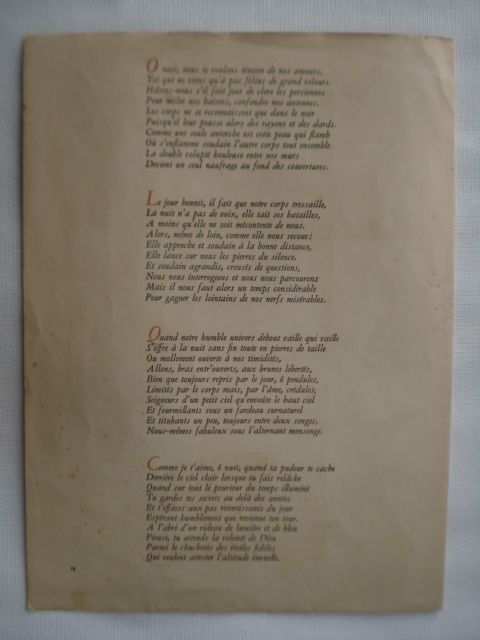 O nuit, nous te voulons témoin de nos amours,
Toi qui ne viens qu'à pas félins de grand velours.
Hâtons-nous s'il fait jour de clore les persiennes
Pour mêler nos baisers, confondre nos antennes.
Les corps ne se reconnaissent que dans le noir
Puisqu'il leur pousse alors des rayons et des dards.
Comme une seule autorche est cette peau qui flamb
Où s'enflamme soudain l'autre corps tout ensemble.
La double volupté houleuse entre nos murs
Devient un seul naufrage au fond des couvertures.
Le jour hennit, il fait que notre corps tressaille,
La nuit n'a pas de voix, elle tait ses batailles,
A moins qu'elle ne soit mécontente de nous.
Alors, même de loin, comme elle nous secoue!
Elle approche et soudain à la bonne distance,
Elle lance sur nous les pierres du silence.
Et soudain agrandis, creusés de questions,
Nous nous interrogeons et nous nous parcourons
Mais il nous faut alors un temps considérable
Pour gagner les lointains de nos nerfs misérables.
Quand notre humble univers debout vaille qui vaille
S'offre à la nuit sans fin toute en pierres de taille
Ou mollement ouverte à nos timidités,
Allons, bras entr'ouverts, aux brunes libertés,
Bien que toujours repris par le jour, ô pendules,
Limités par le corps mais, par l'âme, crédules,
Seigneurs d'un petit ciel qu'envoûte le haut ciel
Et fourmillants sous un fardeau surnaturel
Et titubants un peu, toujours entre deux songes,
Nous-mêmes fabuleux sous l'alternant mensonge.
Comme je t'aime, ô nuit, quand ta pudeur te cache
Derrière le ciel clair lorsque tu fais relâche
Quand sur tout le pourtour du temps illuminé
Tu gardes tes secrets au delà des années
Et t'effaces aux pas retentissants du jour
Espérant humblement que revienne ton tour.
A l'abri d'un rideau de lumière et de bleu
Pieuse, tu attends la volonté de Dieu
Parmi le chuchotis des étoiles fidèles
Qui veulent attester l'altitude éternelle.